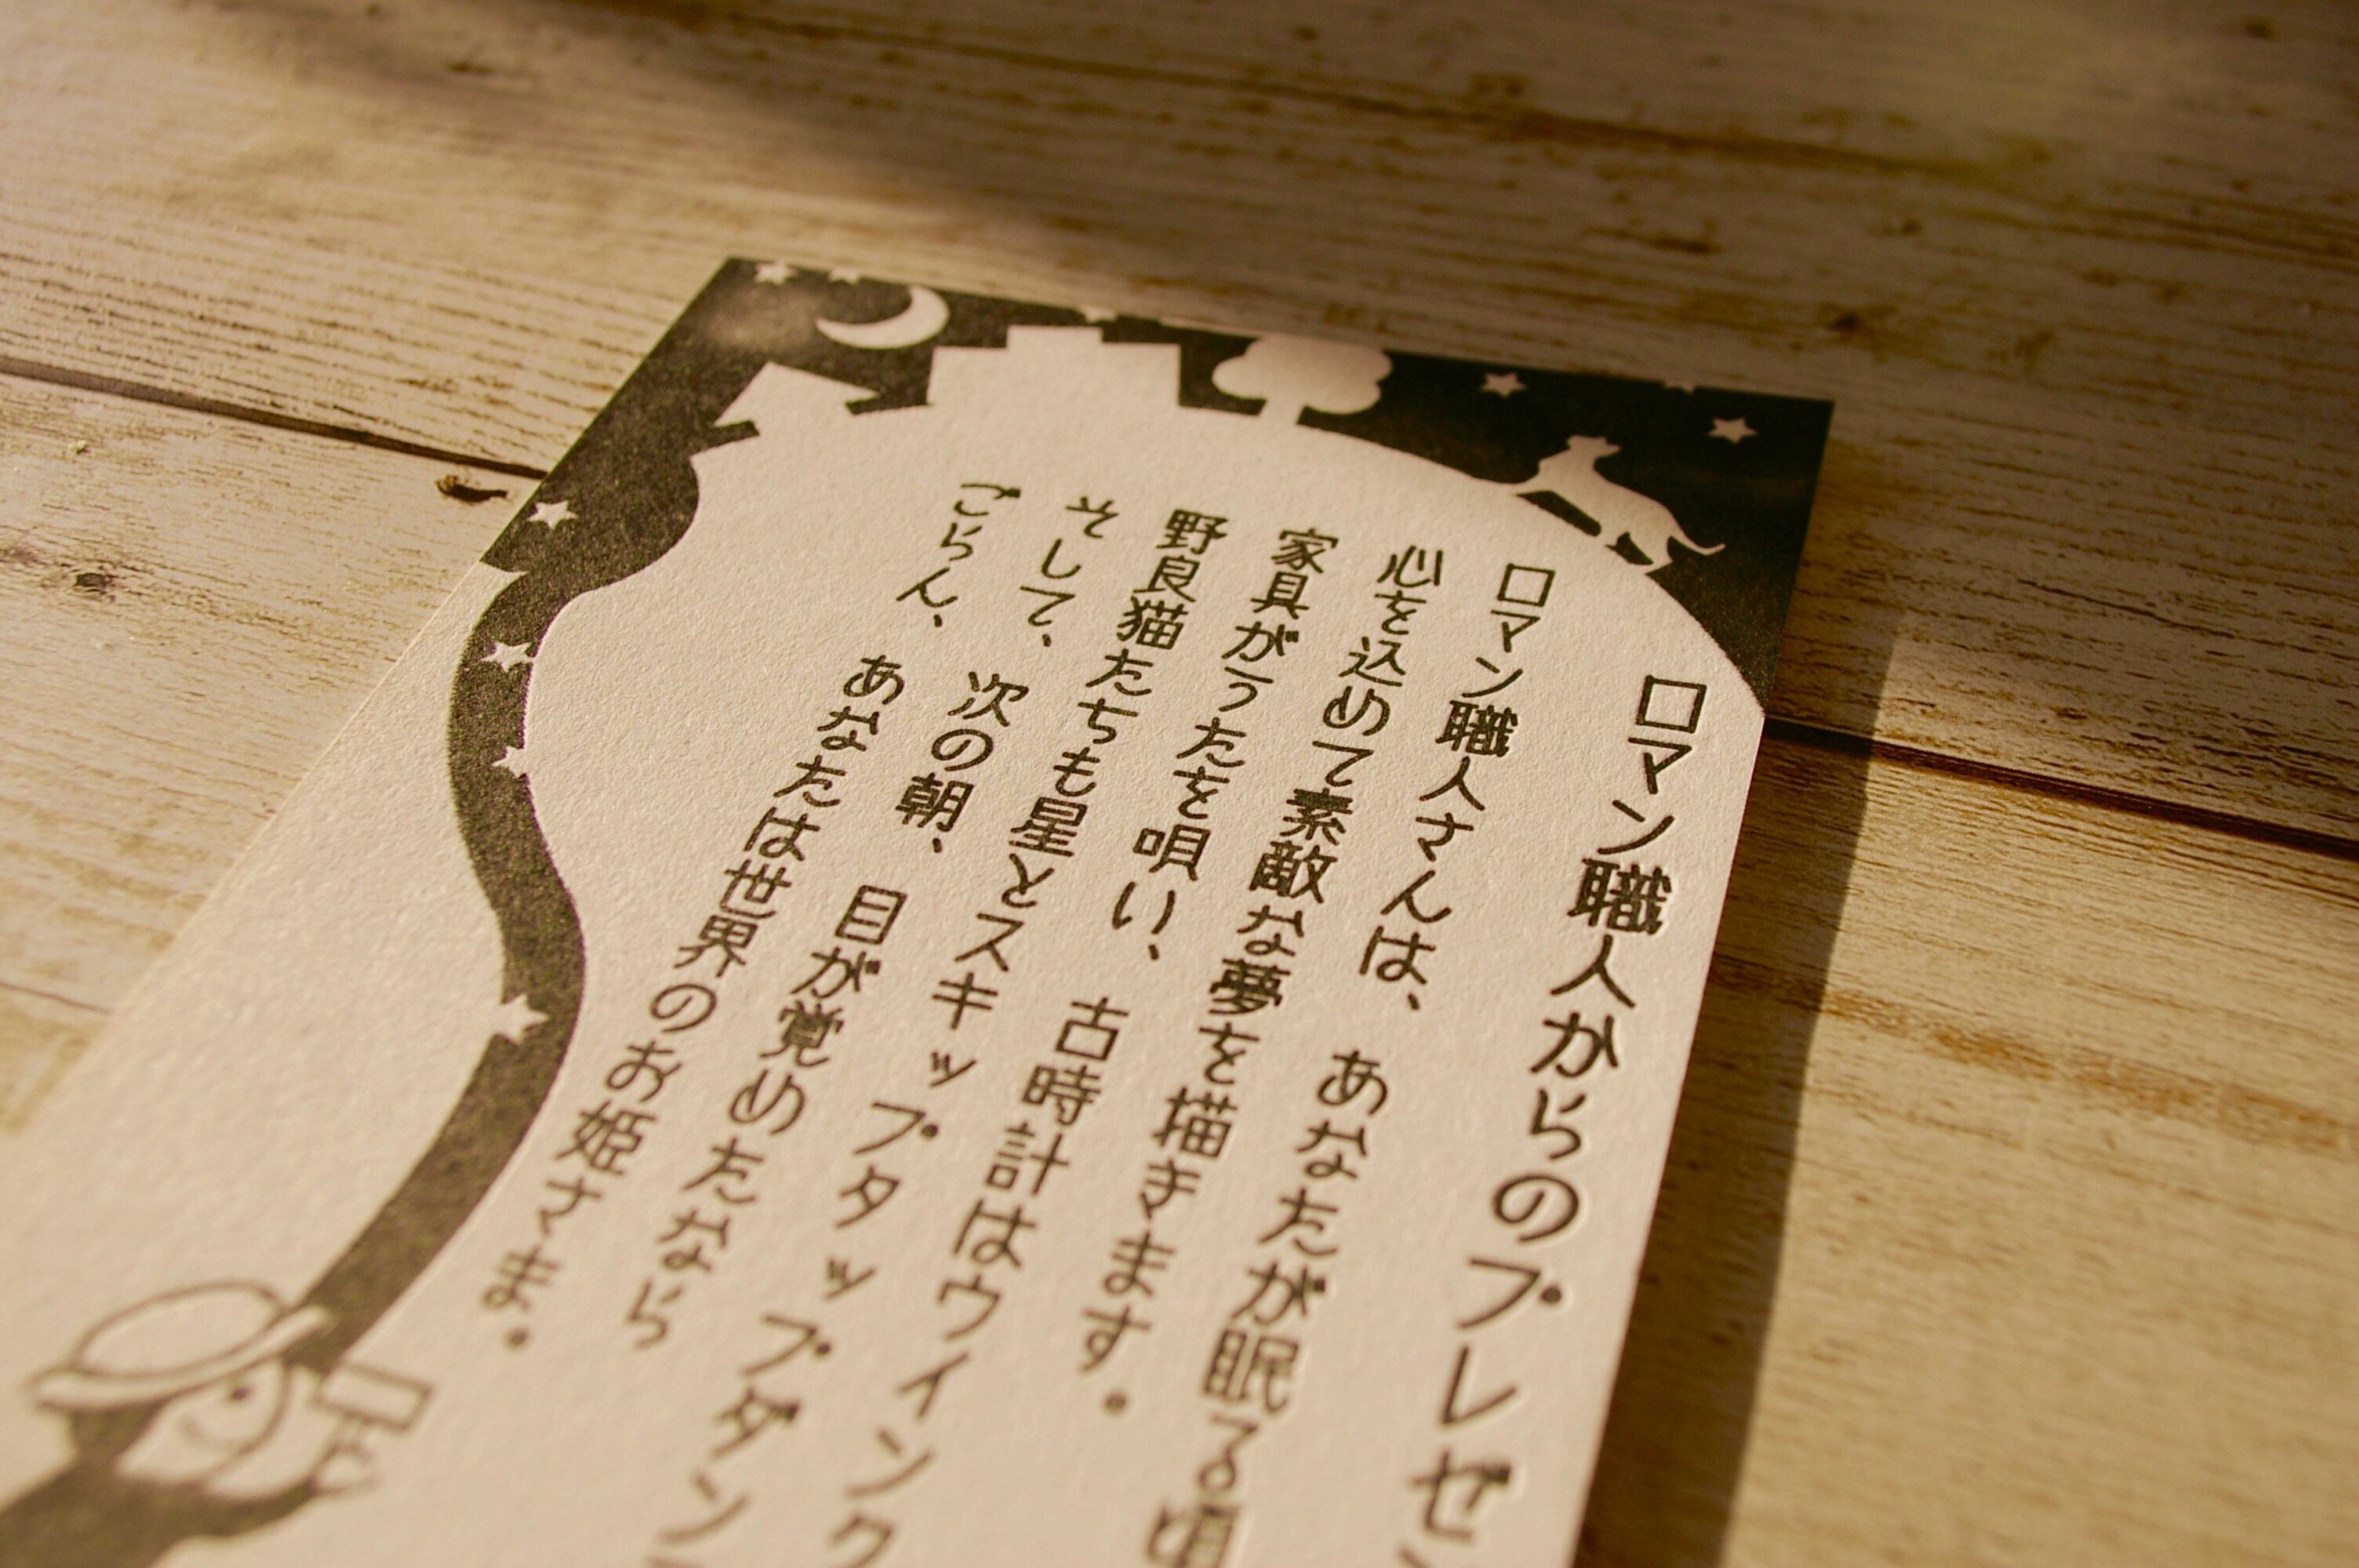 ロマン職人からのプレゼ
ロマン職人さんは、　あなたが眠る頃
心を込めて素敵な夢を描きます。
家具がうたを唄い、　古時計はウインク
野良猫たちも星とスキップタップダン
そして、　次の朝、　目が覚めたなら
ごらん、　あなたは世界のお姫さま。